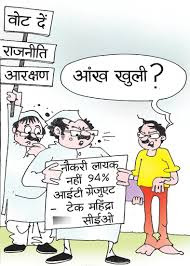 वोट दें
राजनीति
आरक्षण
आंख खुली ?
नौकरी लायक
नहीं 94%
आईटी ग्रेजुएट
– टेक महिंद्रा
सीईओ